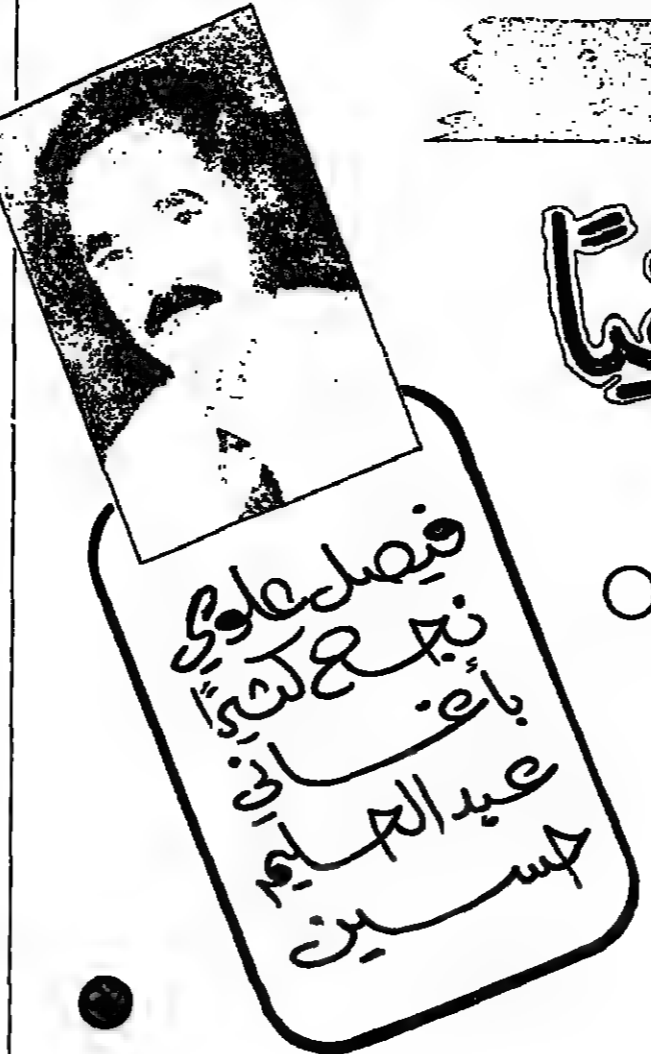 فيصل علوي
نجح كثيرًا
بأغاني
عبد الحليم
حسين